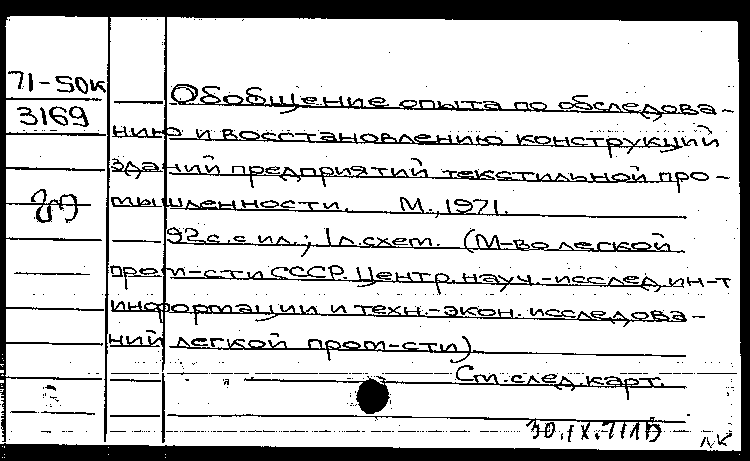 71-50к
3169
Обобщение опыта по обследова-
нию и восстановлению конструкций
зданий предприятий текстильной про-
мышленности. М., 1971.
92 с. с ил.; 1 л. схем. (М-во легкой
пром-сти СССР. Центр. науч.-исслед. ин-т
информации и техн.-экон. исследова-
ний легкой пром-сти)
См. след. карт.
30.IX.71
лк